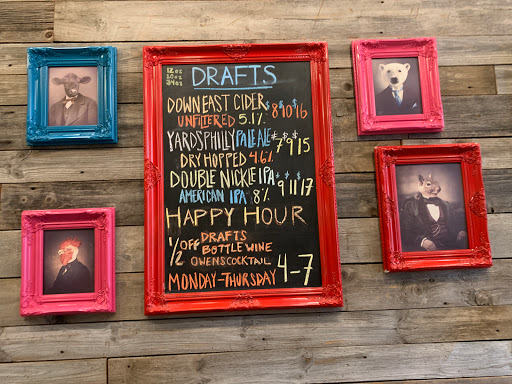 12oz
10oz
34oz
DRAFTS
DOWNEAST CIDER $8 $10 $16
UNFILTERED 5.1%
YARDS PHILLY PALE ALE $7 $9 $15
DRY HOPPED 4.6%
DOUBLE NICKLE IPA $9 $11 $17
AMERICAN IPA 8%
HAPPY HOUR
1/2 OFF DRAFTS
BOTTLE WINE
OWENS COCKTAIL
MONDAY-THURSDAY 4-7